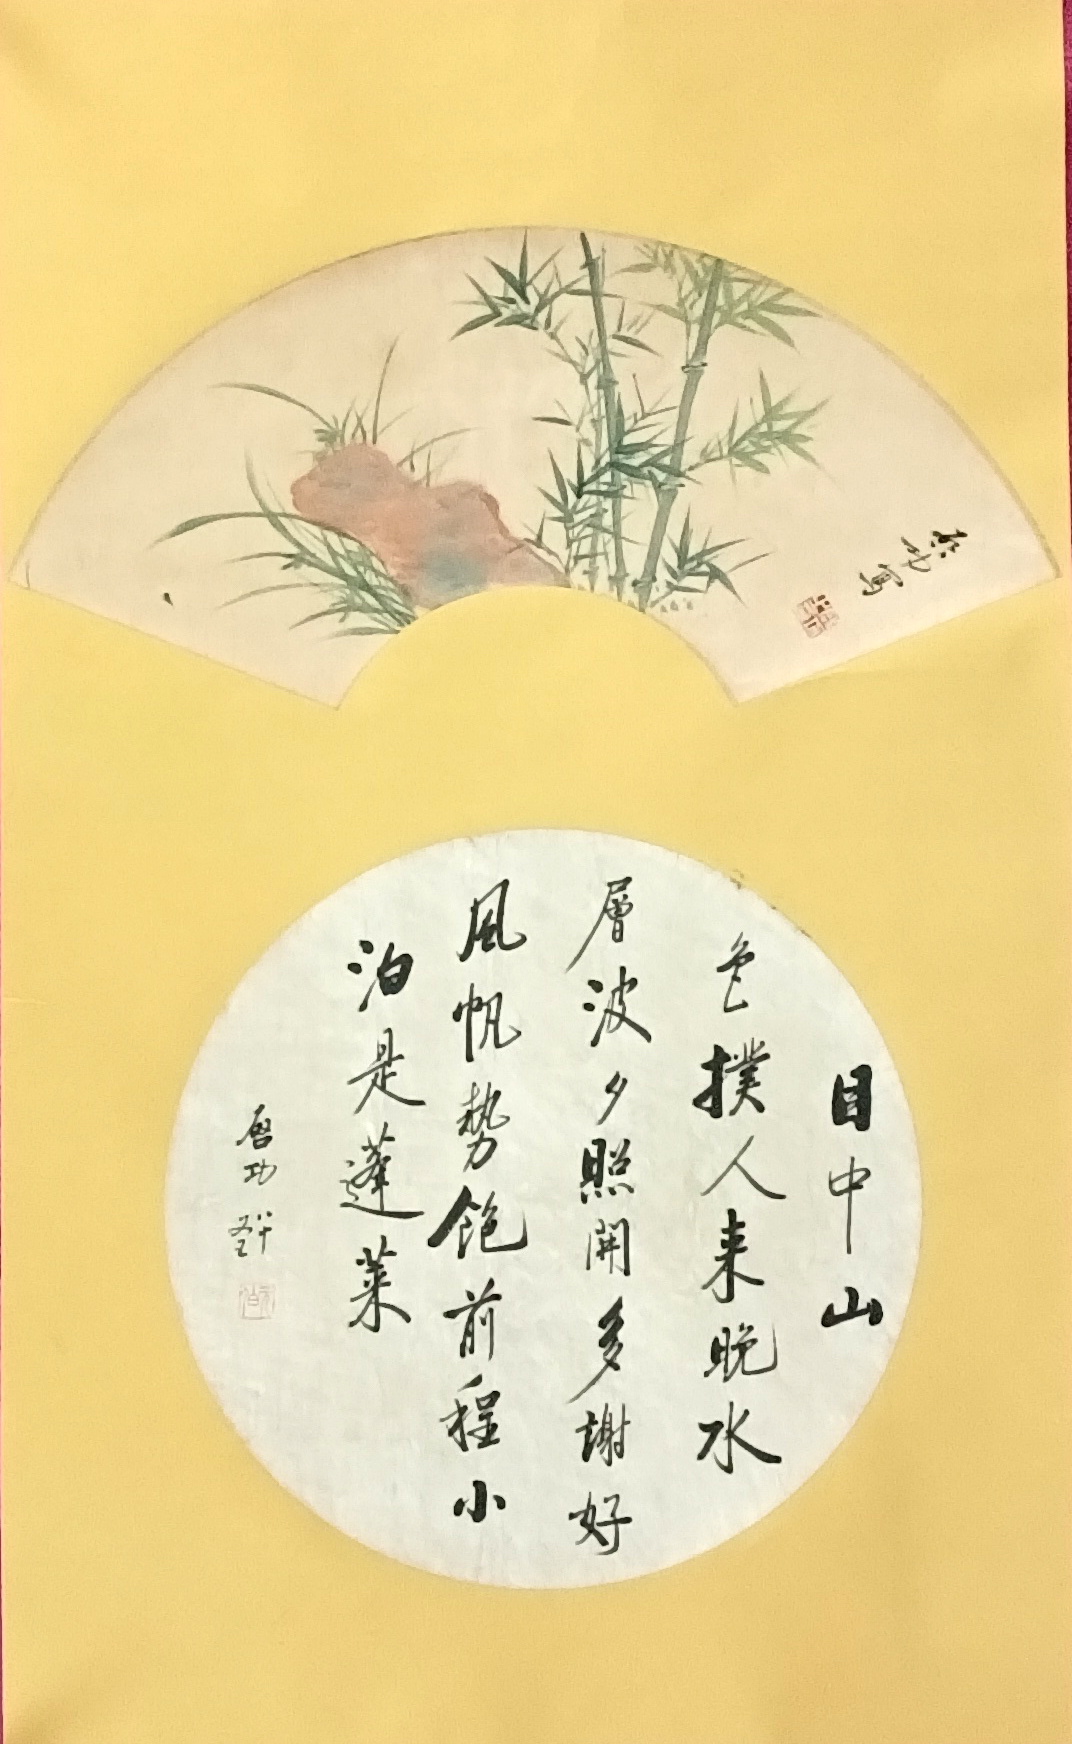 啓功寫
目中山
色撲人来晚水
層波夕照開多謝好
風帆勢飽前程小
泊是蓬莱
啓功